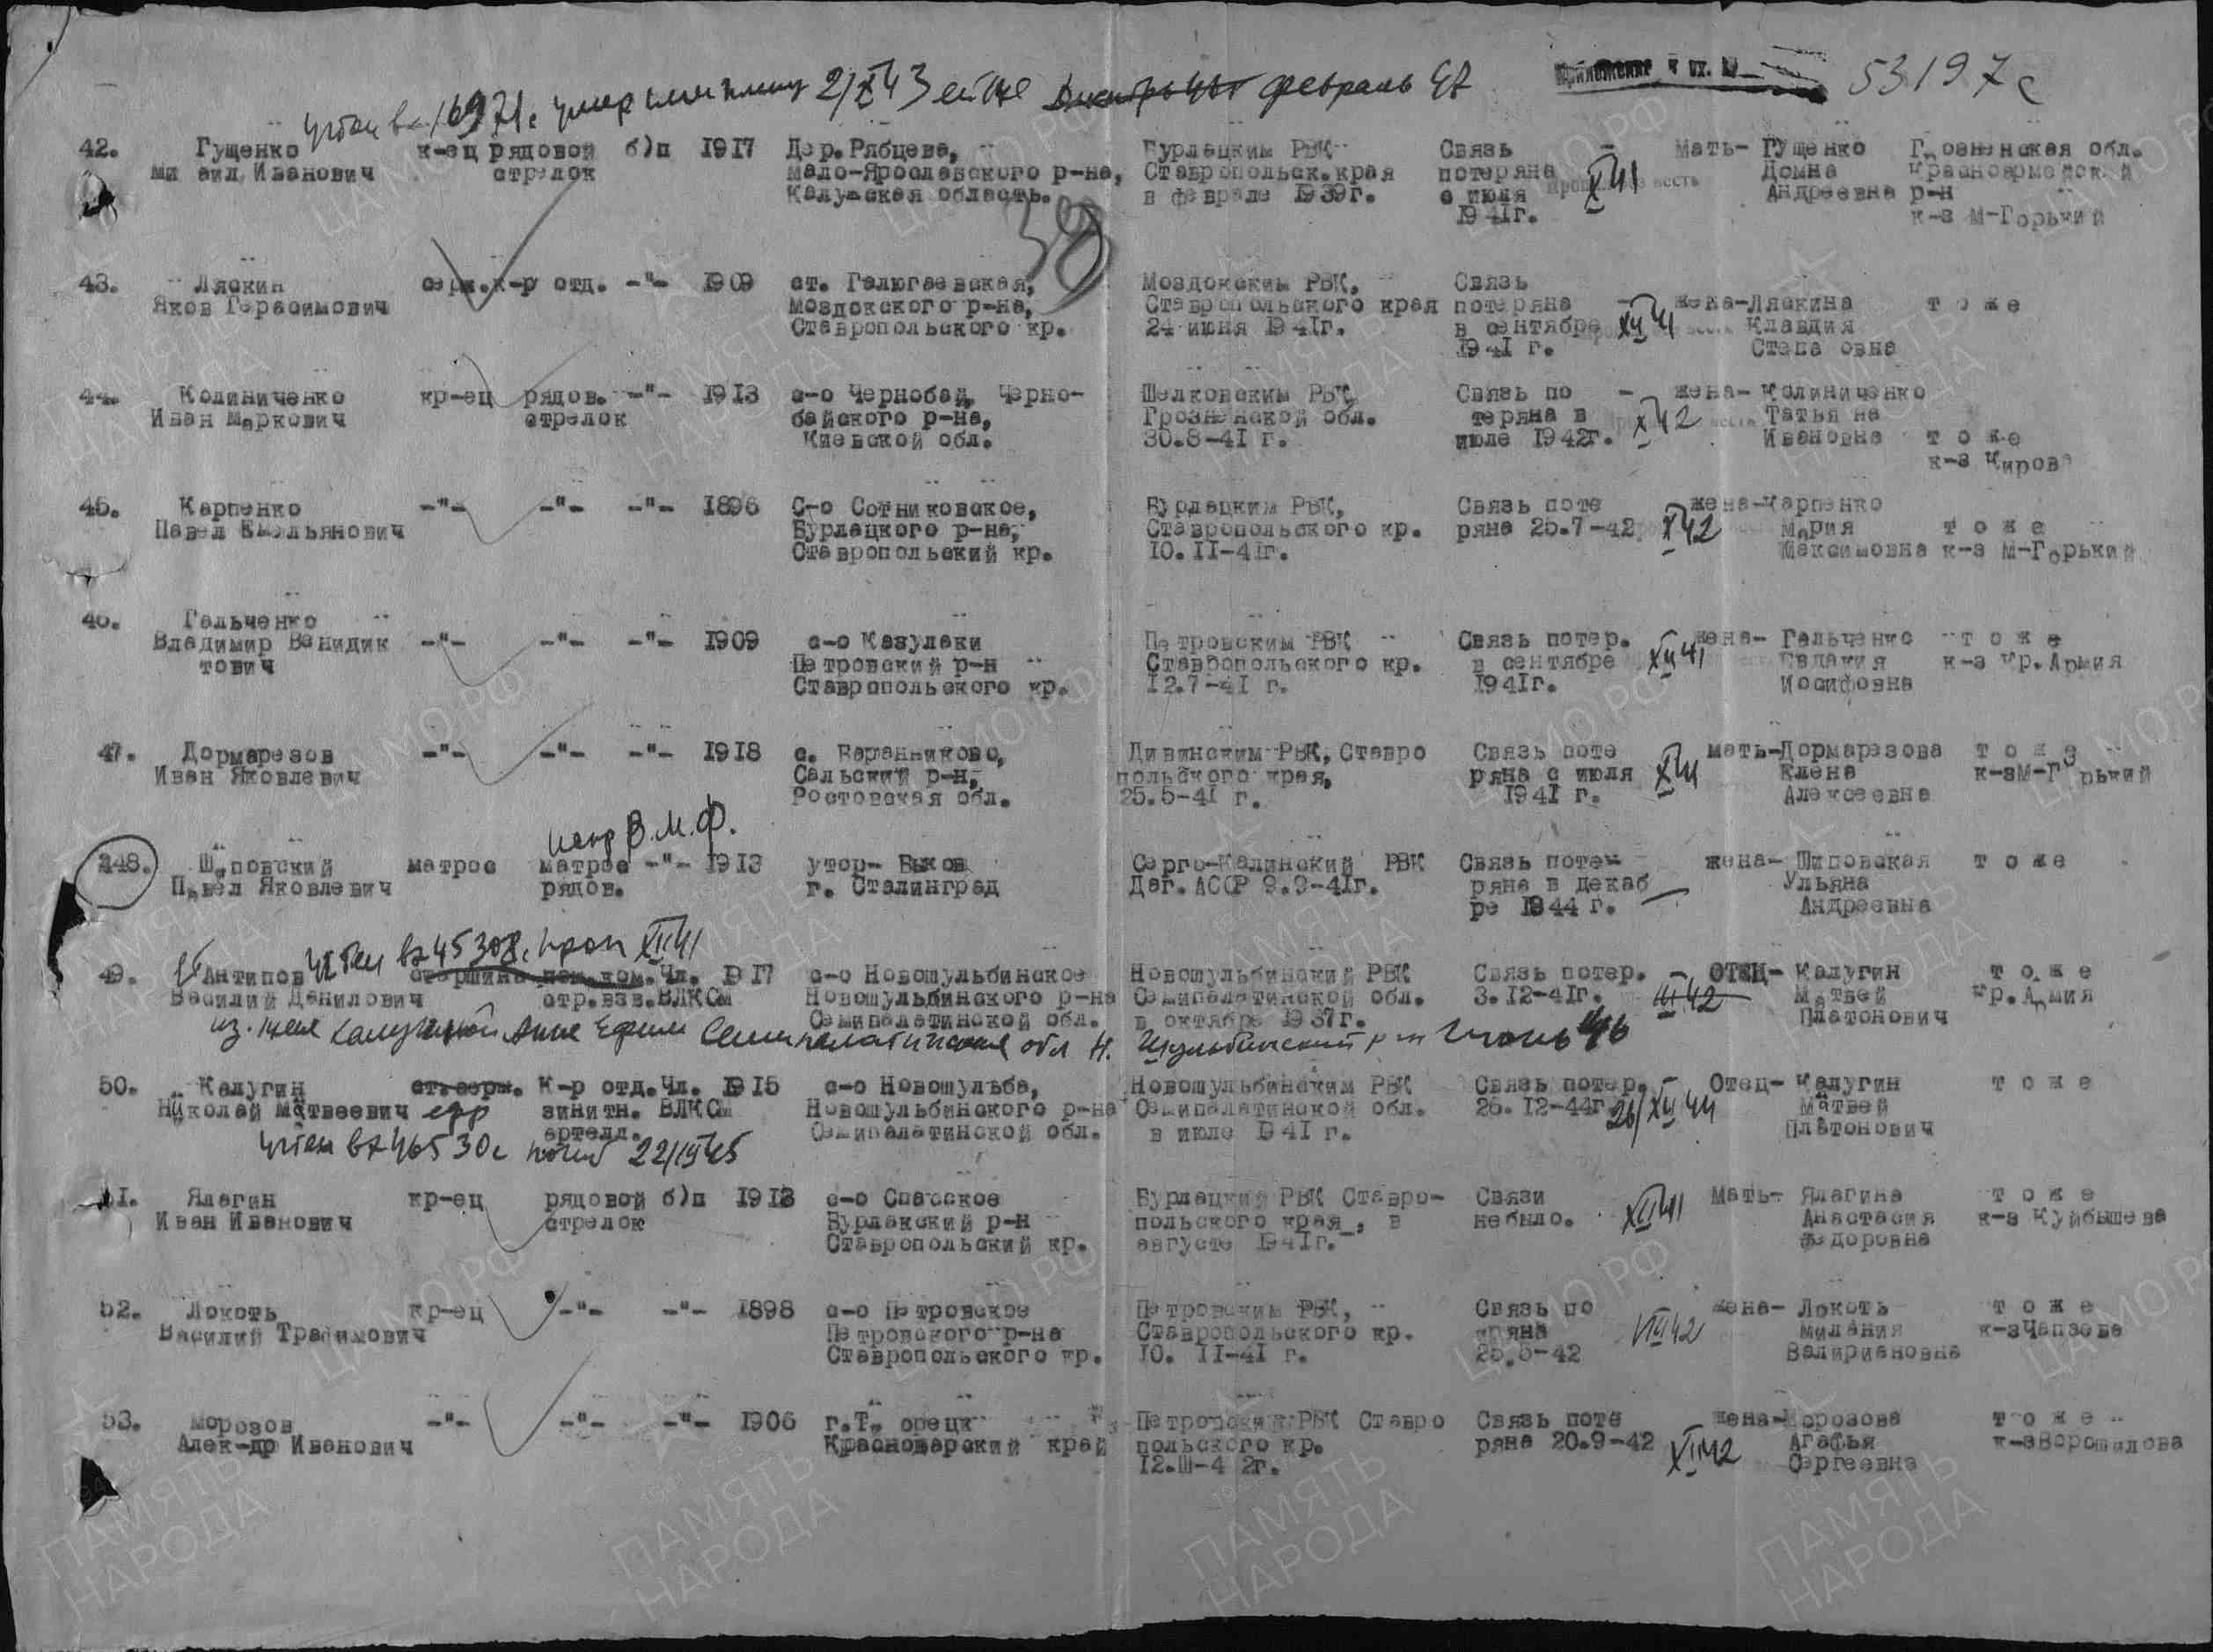 53197с
учтен вх 16971с умер
42. Гущенко к-ец рядовой б)п 1917 Дер. Рябцева, Бурлацким РВК Связь - Мать- Гущенко Грозненская обл.
Ми аил Иванович стрелок Мало-Ярославского р-на, Ставропольск.края потеряна X 41 Домна Красноармейский
Калужская область. в феврале 1939г. с июля Андреевна р-н
1941г. к-з М-Горький
39
43. Ляскин серж. к-р отд. -"- 1909 ст. Галюгаевская, Моздокским РВК, Связь
Яков Герасимович Моздокского р-на, Ставропольского края потеряна - жена-Ляскина т о ж е
Ставропольского кр. 24 июня 1941г. в сентябре XII 41 Клавдия
1941 г. Степа овна
44. Колиниченко кр-ец рядов. -"- 1913 с-о Чернобай, Черно- Шелковским РВК Связь по - жена- Колиниченко
Иван Маркович стрелок байского р-на, Грозненской обл. теряна в X 42 Татья на
Киевской обл. 30.8-41 г. июле 1942г. Ивановна т о ж е
к-з Кирова
45. Карпенко -"- -"- -"- 1896 С-о Сотниковское, Бурлацким РВК, Связь поте жена-Карпенко
Павел Емельянович Бурлацкого р-на, Ставропольского кр. ряна 25.7-42 X 42 Мария т о ж е
Ставропольский кр. 10.11-41г. Максимовна к-з М-Горький
46. Гальченко
Владимир Венидик -"- -"- -"- 1909 с-о Казулаки Петровским РВК Связь потер. жена- Гальченко т о ж е
тович Петровский р-н Ставропольского кр. в сентябре XII 41 Евдакия к-з Кр.Армия
Ставропольского кр. 12.7-41 г. 1941г. Иосифовна
47. Дормарезов -"- -"- -"- 1918 с. Баранниково, Дивинским РВК, Ставро Связь поте мать-Дормарезова т о ж е
Иван Яковлевич Сальский р-н, польского края, ряна с июля X 41 Елена к-зМ-Г рький
Ростовская обл. 25.5-41 г. 1941 г. Алексеевна
В.М.Ф.
248. Шиповский матрос матрос -"- 1913 утор- Быков Серго-Калинский РВК Связь потеч жена- Шиповская т о ж е
Павел Яковлевич рядов. г. Сталинград Даг. АССР 9.9-41г. ряна в декаб Ульяна
ре 1944 г. Андреевна
учтен вх 45308с проп XII 41
49. Антипов старшина пом.ком. Чл. 1917 с-о Новошульбинское Новошульбинский РВК Связь потер. - ОТЕЦ- Калугин т о ж е
Василий Данилович стр.взв. ВЛКСМ Новошульбинского р-на Семипалатинской обл. 3.12-41г. III 42 Матвей Кр.Армия
Семипалатинской обл. в октябре 1937г. Платонович
из. жене Калугиной Анне Ефим Семипалатинская обл Н. Шульбинский р-н
50. Калугин ст.серж. К-р отд. Чл. 1915 с-о Новошульба, Новошульбинским РВК Связь потер. - Отец- Калугин т о ж е
Николай Матвеевич зинитн. ВЛКСМ Новошульбинского р-на Семипалатинской обл. 26.12-44г 26/XII 44 Матвей
артелл. Семипалатинской обл. в июле 1941 г. Платонович
учтен вх 46530с погиб 22/IV 45
51. Ялагин кр-ец рядовой б)п 1913 с-о Спасское Бурлацкий РВК Ставро- Связи Мать- Ялагина т о ж е
Иван Иванович стрелок Бурлакский р-н польского края, в небыло. XII 41 Анастасия к-з Куйбышева
Ставропольский кр. августе 1941г. Федоровна
52. Локоть кр-ец -"- -"- 1898 с-о Петровское Петровским РВК, Связь по жена- Локоть т о ж е
Василий Трафимович Петровского р-на Ставропольского кр. теряна VIII 42 Милания к-зЧапаева
Ставропольского кр. 10. 11-41 г. 25.5-42 Валириановна
53. Морозов -"- -"- -"- 1906 г.Т орецк Петровским РВК Ставро Связь поте жена-Морозова т о ж е
Алек-др Иванович Краснодарский край польского кр. ряна 20.9-42 XII 42 Агафья к-зВорошилова
12.Ш-4 2г. Сергеевна
ПАМЯТЬ НАРОДА
ЦАМО.РФ